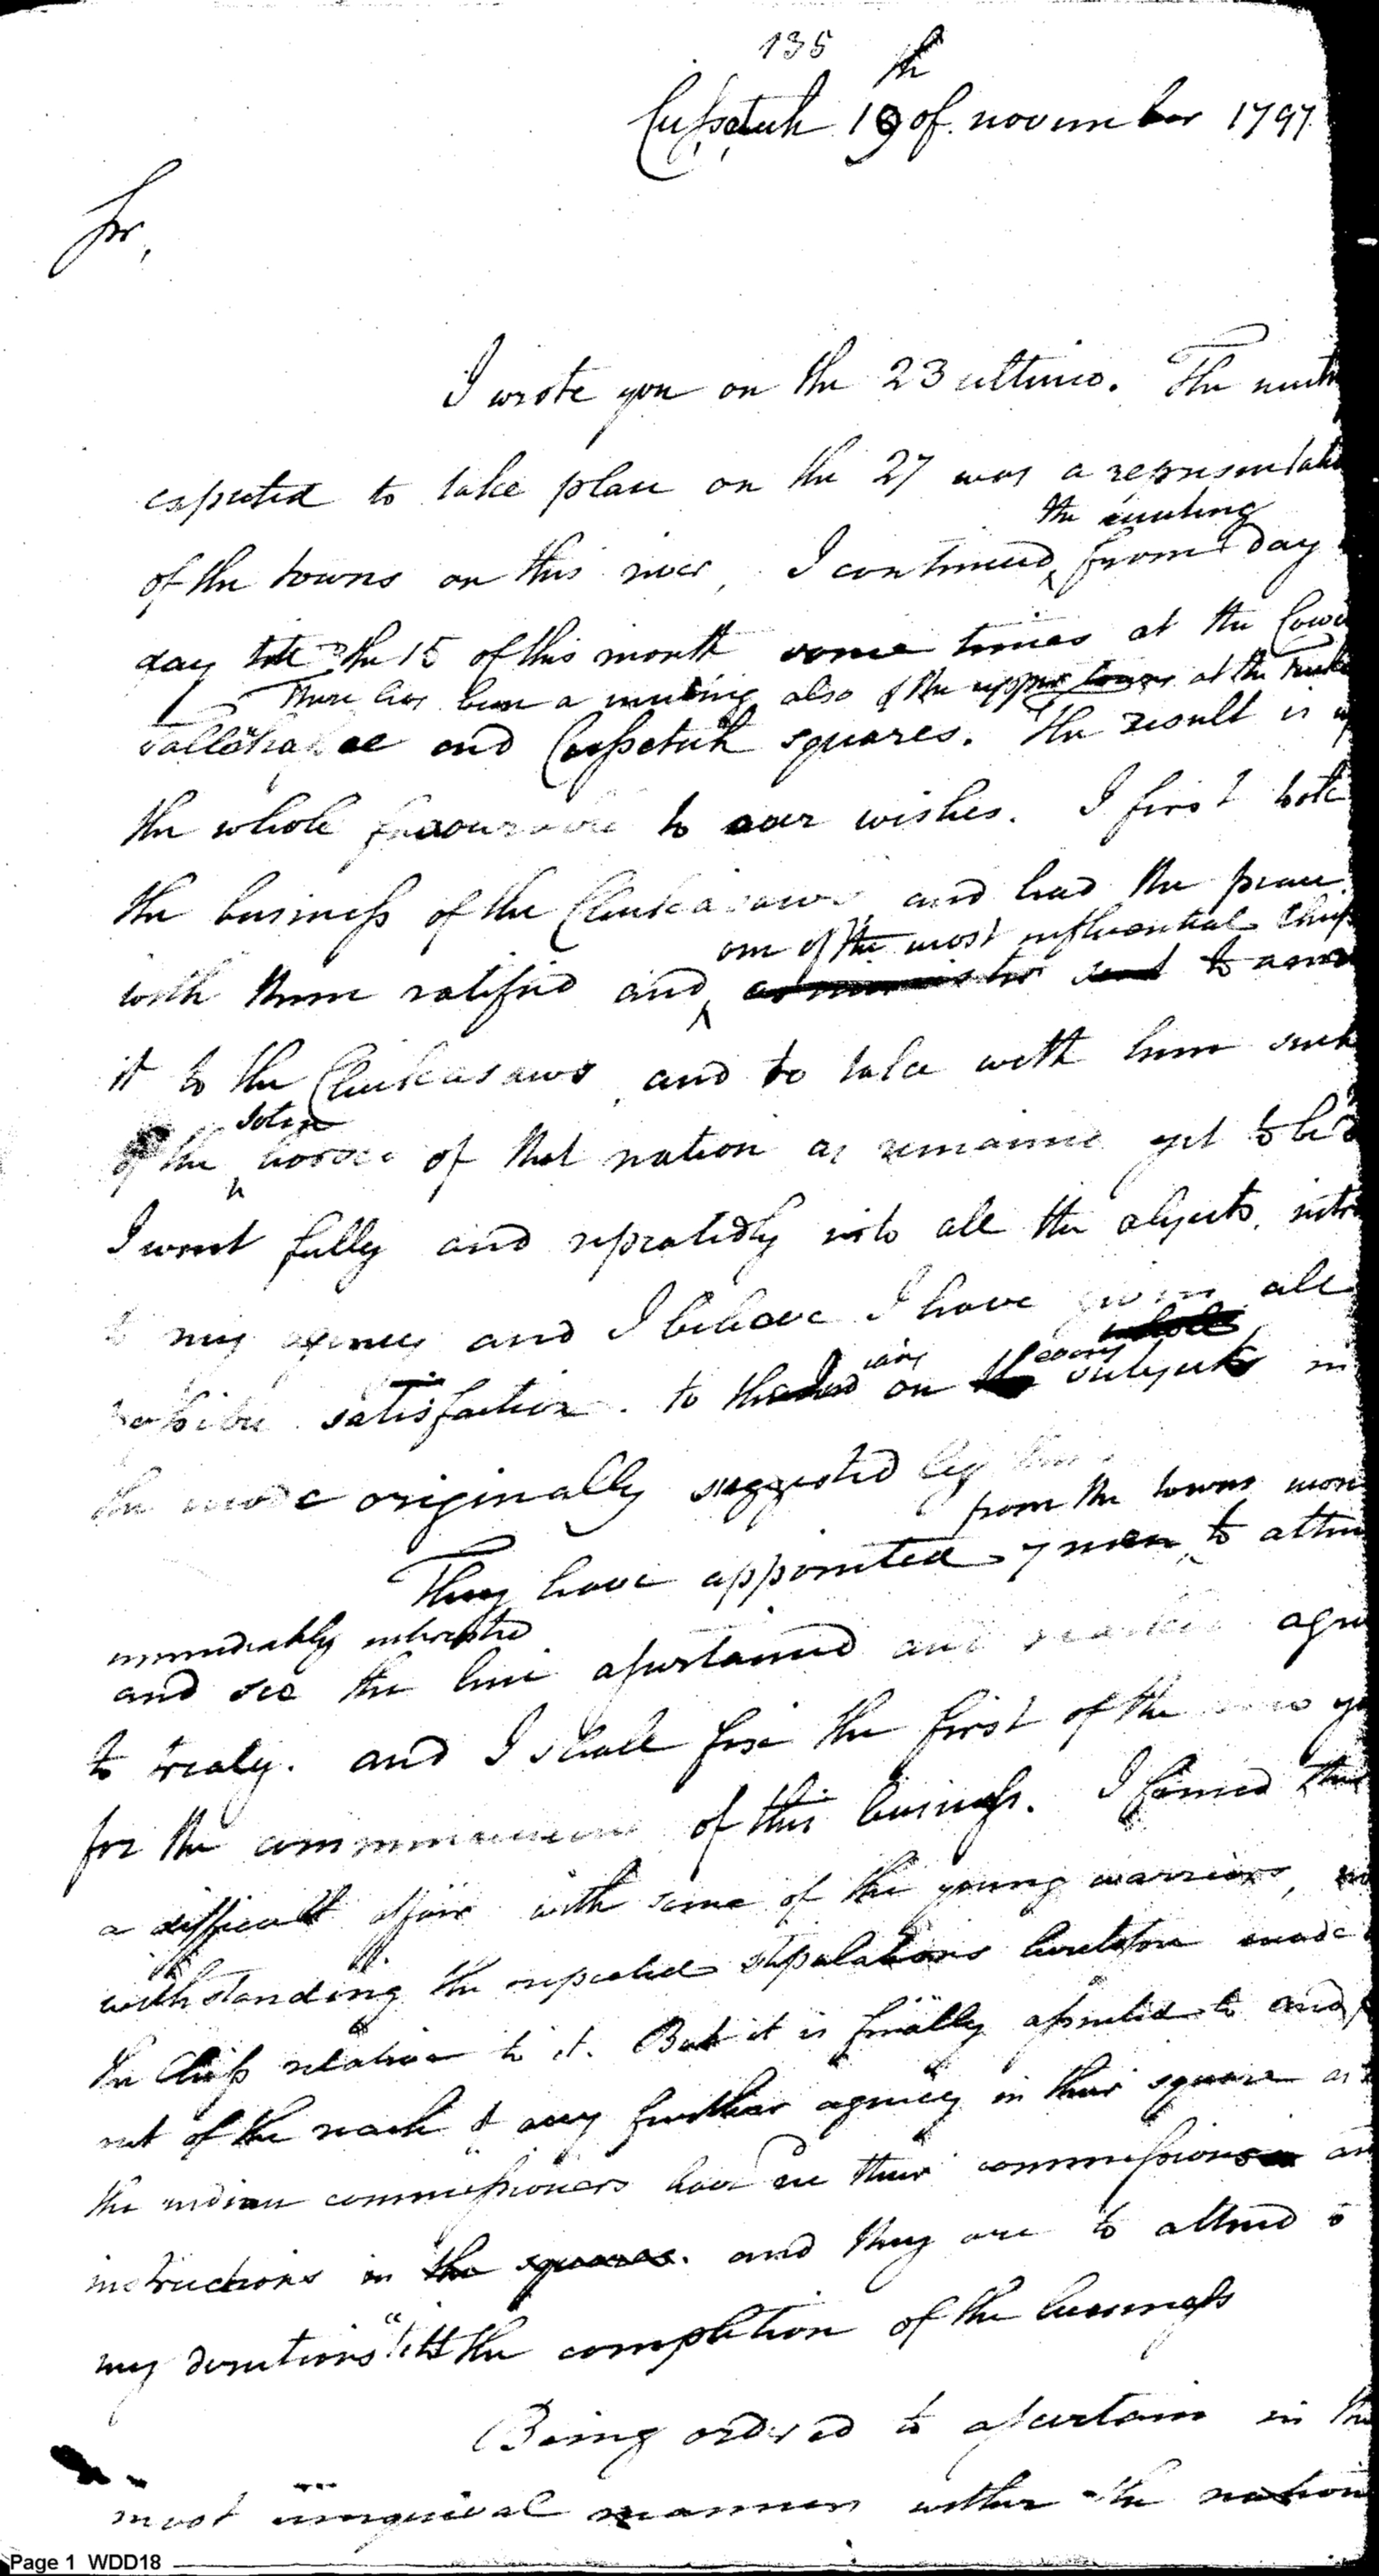 135
Cussetuh 19th of november 1797
Sir,
I wrote you on the 23 ultimo. The
expected to take place on the 27 was a
the meeting
of the towns on this river, I continued from day
day till the 15 of this month some times at the
There has been a meeting also of the upper towns at the
and Cussetuh squares. The result is
the whole favourable to our wishes. I first
the business of the Chickasaws and had the peace
one of the most influential Chiefs
with them ratified and sent to
it to the Chickasaws, and to take with him such
stolen
of the horses of that nation as remained yet to be
I went fully and repeatedly into all the objects,
to my agency and I believe I have given all
whole
every
possible satisfaction. to on subjects in
the mode originally suggested by
from the towns more
They have appointed 7 men to
immediately interested
and see the line ascertained and marked
to treaty. and I shall fix the first of the new
for the commencement of this business. I found this
a difficult affair with some of the young warriors,
withstanding the repeated stipulations heretofore made
the Chiefs relative to it. But it is finally assented to and
out of the reach of any further agency in their square as
the indian commissioners have their commissions
instructions in the squares. and they are to attend to
my directions till the completion of the business
Being ordered to ascertain in the
most unequivocal manner wether the nation
Page 1 WDD18